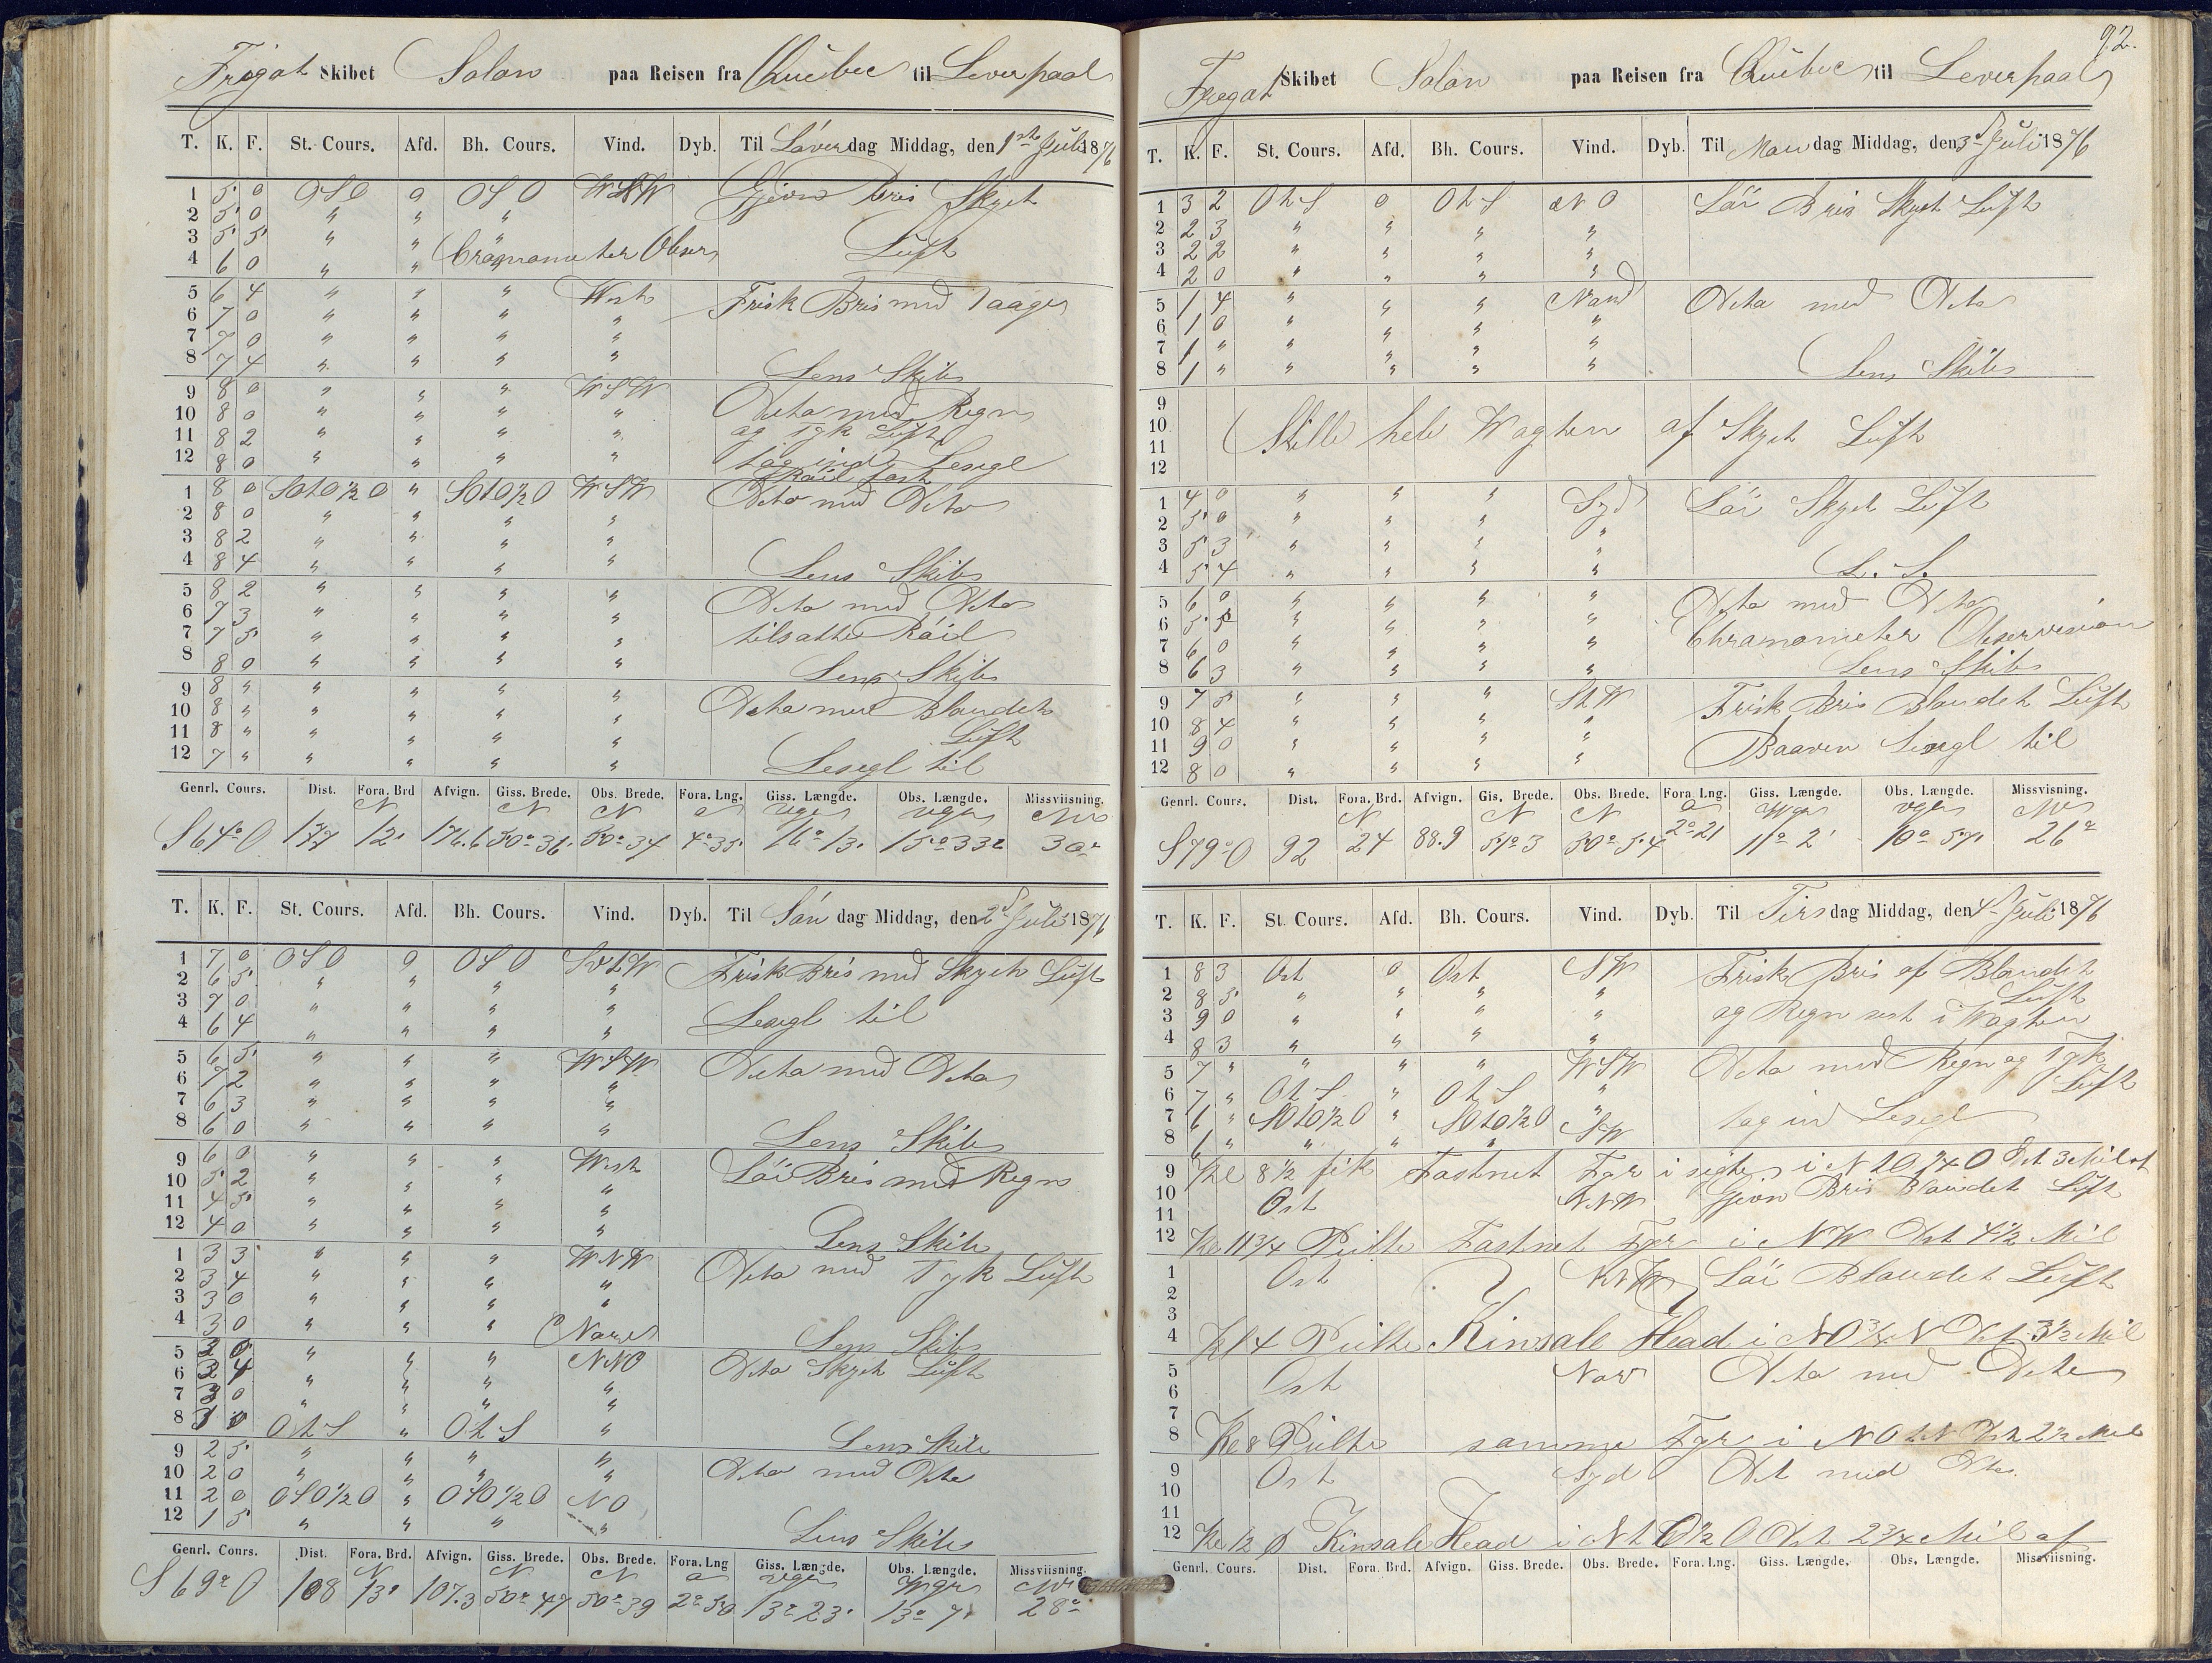 Fregat Skibet Solon paa Reisen fra Quebec til Leverpaal
T. K. F. St. Cours. Afd. Bh. Cours. Vind. Dyb. Til Løverdag Middag, den 1ste Juli 1876
1 5 0 OSO 0 OSO WSW Gjevn Bris Skyet
2 5 0 " " "
3 5 5 " " " Luft
4 6 0 " "
5 6 4 " " " West Frisk Bris med Taage
6 7 0 " " " "
7 7 0 " " " "
8 7 4 " " " " Lens Skib
9 8 0 " " " WSW Dito med Regn
10 8 0 " " " " og Tyk Luft
11 8 2 " " " " tog ind Lesegl
12 8 0 " " " "
1 8 0 SOtO½O " SOtO½O WSW Dito med Dito
2 8 0 " " " "
3 8 2 " " " "
4 8 4 " " " " Lens Skib
5 8 2 " " " " Dito med Dito
6 7 3 " " " "
7 7 5 " " " " tilsatte Röil
8 8 0 " " " " Lens Skib
9 8 " " " " " Dito med Blandet
10 8 " " " " "
11 8 " " " " " Luft
12 7 " " " " " Lesegl til
Genrl. Cours. Dist. Fora. Brd Afvign. Giss. Brede. Obs. Brede. Fora. Lng. Giss. Længde. Obs. Længde. Missviisning.
S 64° O 177 12' 176.6 50° 36' 50° 34 4° 35' 16° 13' 15° 33 30°
T. K. F. St. Cours. Afd. Bh. Cours. Vind. Dyb. Til Søn dag Middag, den 2d Juli 1876
1 7 0 OSO 0 OSO SWtW Frisk Bris med Skyet Luft
2 6 5 " " " "
3 7 0 " " " " Lesegl til
4 6 4 " " " "
5 6 5 " " " WSW Dito med Dito
6 7 2 " " " "
7 6 3 " " " "
8 6 0 " " " " Lens Skib
9 6 0 " " " West Löi Bris med Regn
10 5 2 " " " "
11 4 5 " " " "
12 4 0 " " " " Lens Skib
1 3 3 " " " WNW Dito med Tyk Luft
2 3 4 " " " "
3 3 0 " " " "
4 3 0 " " " Nord Lens Skib
5 3 0 " " " NNO Dito Skyet Luft
6 3 4 " " " "
7 3 0 " " " "
8 3 0 OtS " OtS " Lens Skib
9 2 5 " " " "
10 2 0 " " " " Dito med Dito
11 2 0 OSO½O " OSO½O NO
12 1 5 " " " " Lens Skib
Genrl. Cours. Dist. Fora. Brd. Afvign. Giss. Brede. Obs. Brede. Fora. Lng Giss. Længde. Obs. Længde. Missviisning.
S 69° O 108 13' 107.3 50° 47 50° 39 2° 50 13° 23' 13° 7' 28°
92.
Fregat Skibet Solon paa Reisen fra Quebec til Leverpaal
T. K. F. St. Cours. Afd. Bh. Cours. Vind. Dyb. Til Mandag Middag, den 3d Juli 1876
1 3 2 OtS 0 OtS NO Löi Bris Skyet Luft
2 2 3 " " " "
3 2 2 " " " "
4 2 0 " " " "
5 1 4 " " " Nord Dito med Dito
6 1 0 " " " "
7 1 " " " " "
8 1 " " " " " Lens Skib
9
10 Stille hele Wagten af Skyet Luft
11
12
1 4 0 " " " Syd Löi Skyet Luft
2 5 0 " " " "
3 5 3 " " " "
4 5 4 " " " " L. S.
5 6 0 " " " " Dito med Dito
6 5 5 " " " " Chronometer Observesion
7 6 0 " " " "
8 6 3 " " " " Lens Skib
9 7 5 " " " StW Frisk Bris Blandet Luft
10 8 4 " " " "
11 9 0 " " " " Baaven Lesegl til
12 8 0 " " " "
Genrl. Cours. Dist. Fora. Brd. Afvign. Gis. Brede. Obs. Brede. Fora Lng. Giss. Længde. Obs. Længde. Missvisning.
S 79° O 92 24 88.9 51° 3 50° 54 2° 21 11° 2' 10° 57' 26°
T. K. F. St. Cours. Afd. Bh. Cours. Vind. Dyb. Til Tirsdag Middag, den 4de Juli 1876
1 8 3 Ost 0 Ost SW Frisk Bris af Blandet
2 8 5 " " " " Luft
3 9 0 " " " " og Regn sist i Wagten
4 8 3 " " " "
5 7 " " " " WSW Dito med Regn og Tyk
6 7 " OtS " OtS " Luft
7 6 " SOtO½O " SOtO½O " tog ind Lesegl
8 6 " " " " SW
9 Kl 8½ fik Fastnet Fyr i sigte i NtO¼O Dst 3 Mil af
10 Ost NNW Gjevn Bris Blandet Luft
11
12 Kl 11¾ Peilte Fastnet Fyr i NW Dst 4½ Mil
1 Ost NNW Löi Blandet Luft
2
3
4 Kl 4 Peilte Kinsale Head i NO¾N Dst 3½ Mil
5 Ost Nord Dito med Dito
6
7
8 Kl 8 Peilte samme Fyr i NOtN Dst 2½ Mil
9 Ost Syd Dit med Dito
10
11
12 Kl 12 P Kinsale Head i NtO½O Dst 2¾ Mil af
Genrl. Cours. Dist. Fora. Brd. Afvign. Giss. Brede. Obs. Brede. Fora. Lng. Giss. Længde. Obs. Længde. Missviisning.